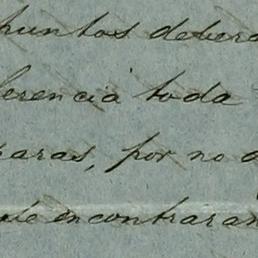 puntos deber
ferencia toda
paras, por no d
que encontraran